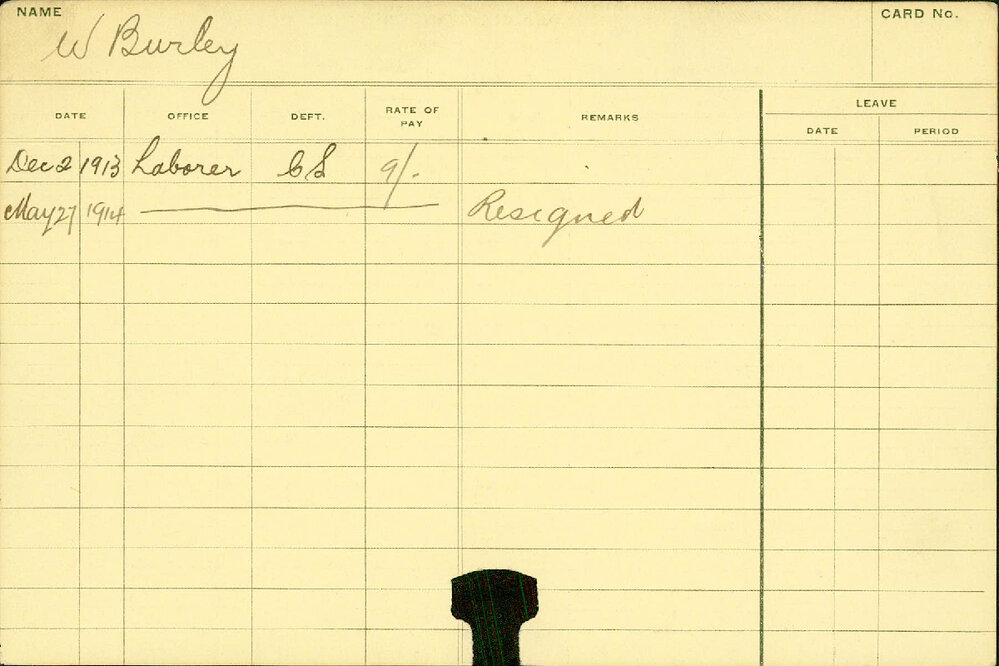 NAME
W Burley
CARD No.
DATE OFFICE DEPT. RATE OF PAY REMARKS LEAVE DATE PERIOD
Dec 2 1913 Laborer CS 9/-
May 27 1914 Resigned